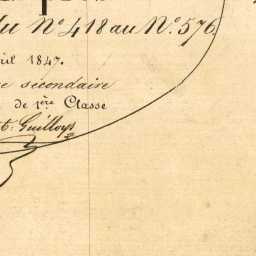 du Nº 418 au Nº 576.
ril 1847.
re secondaire
de 1ère Classe
t. Guilloys